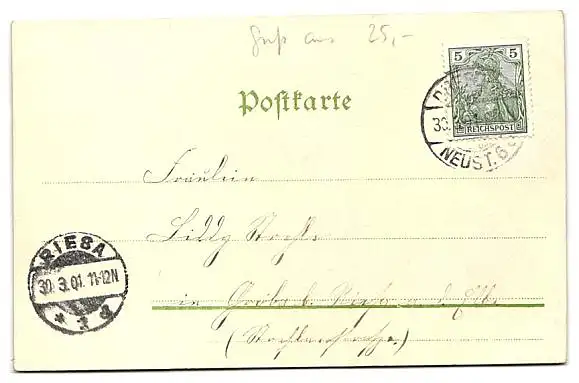 Gruß aus 25,-
5 5
REICHSPOST
30.
NEUST. 6
Postkarte
Fräulein
Liddy
RIESA
30. 3. 01. 11-12N
in Gröba b. Riesa a. d. Elbe